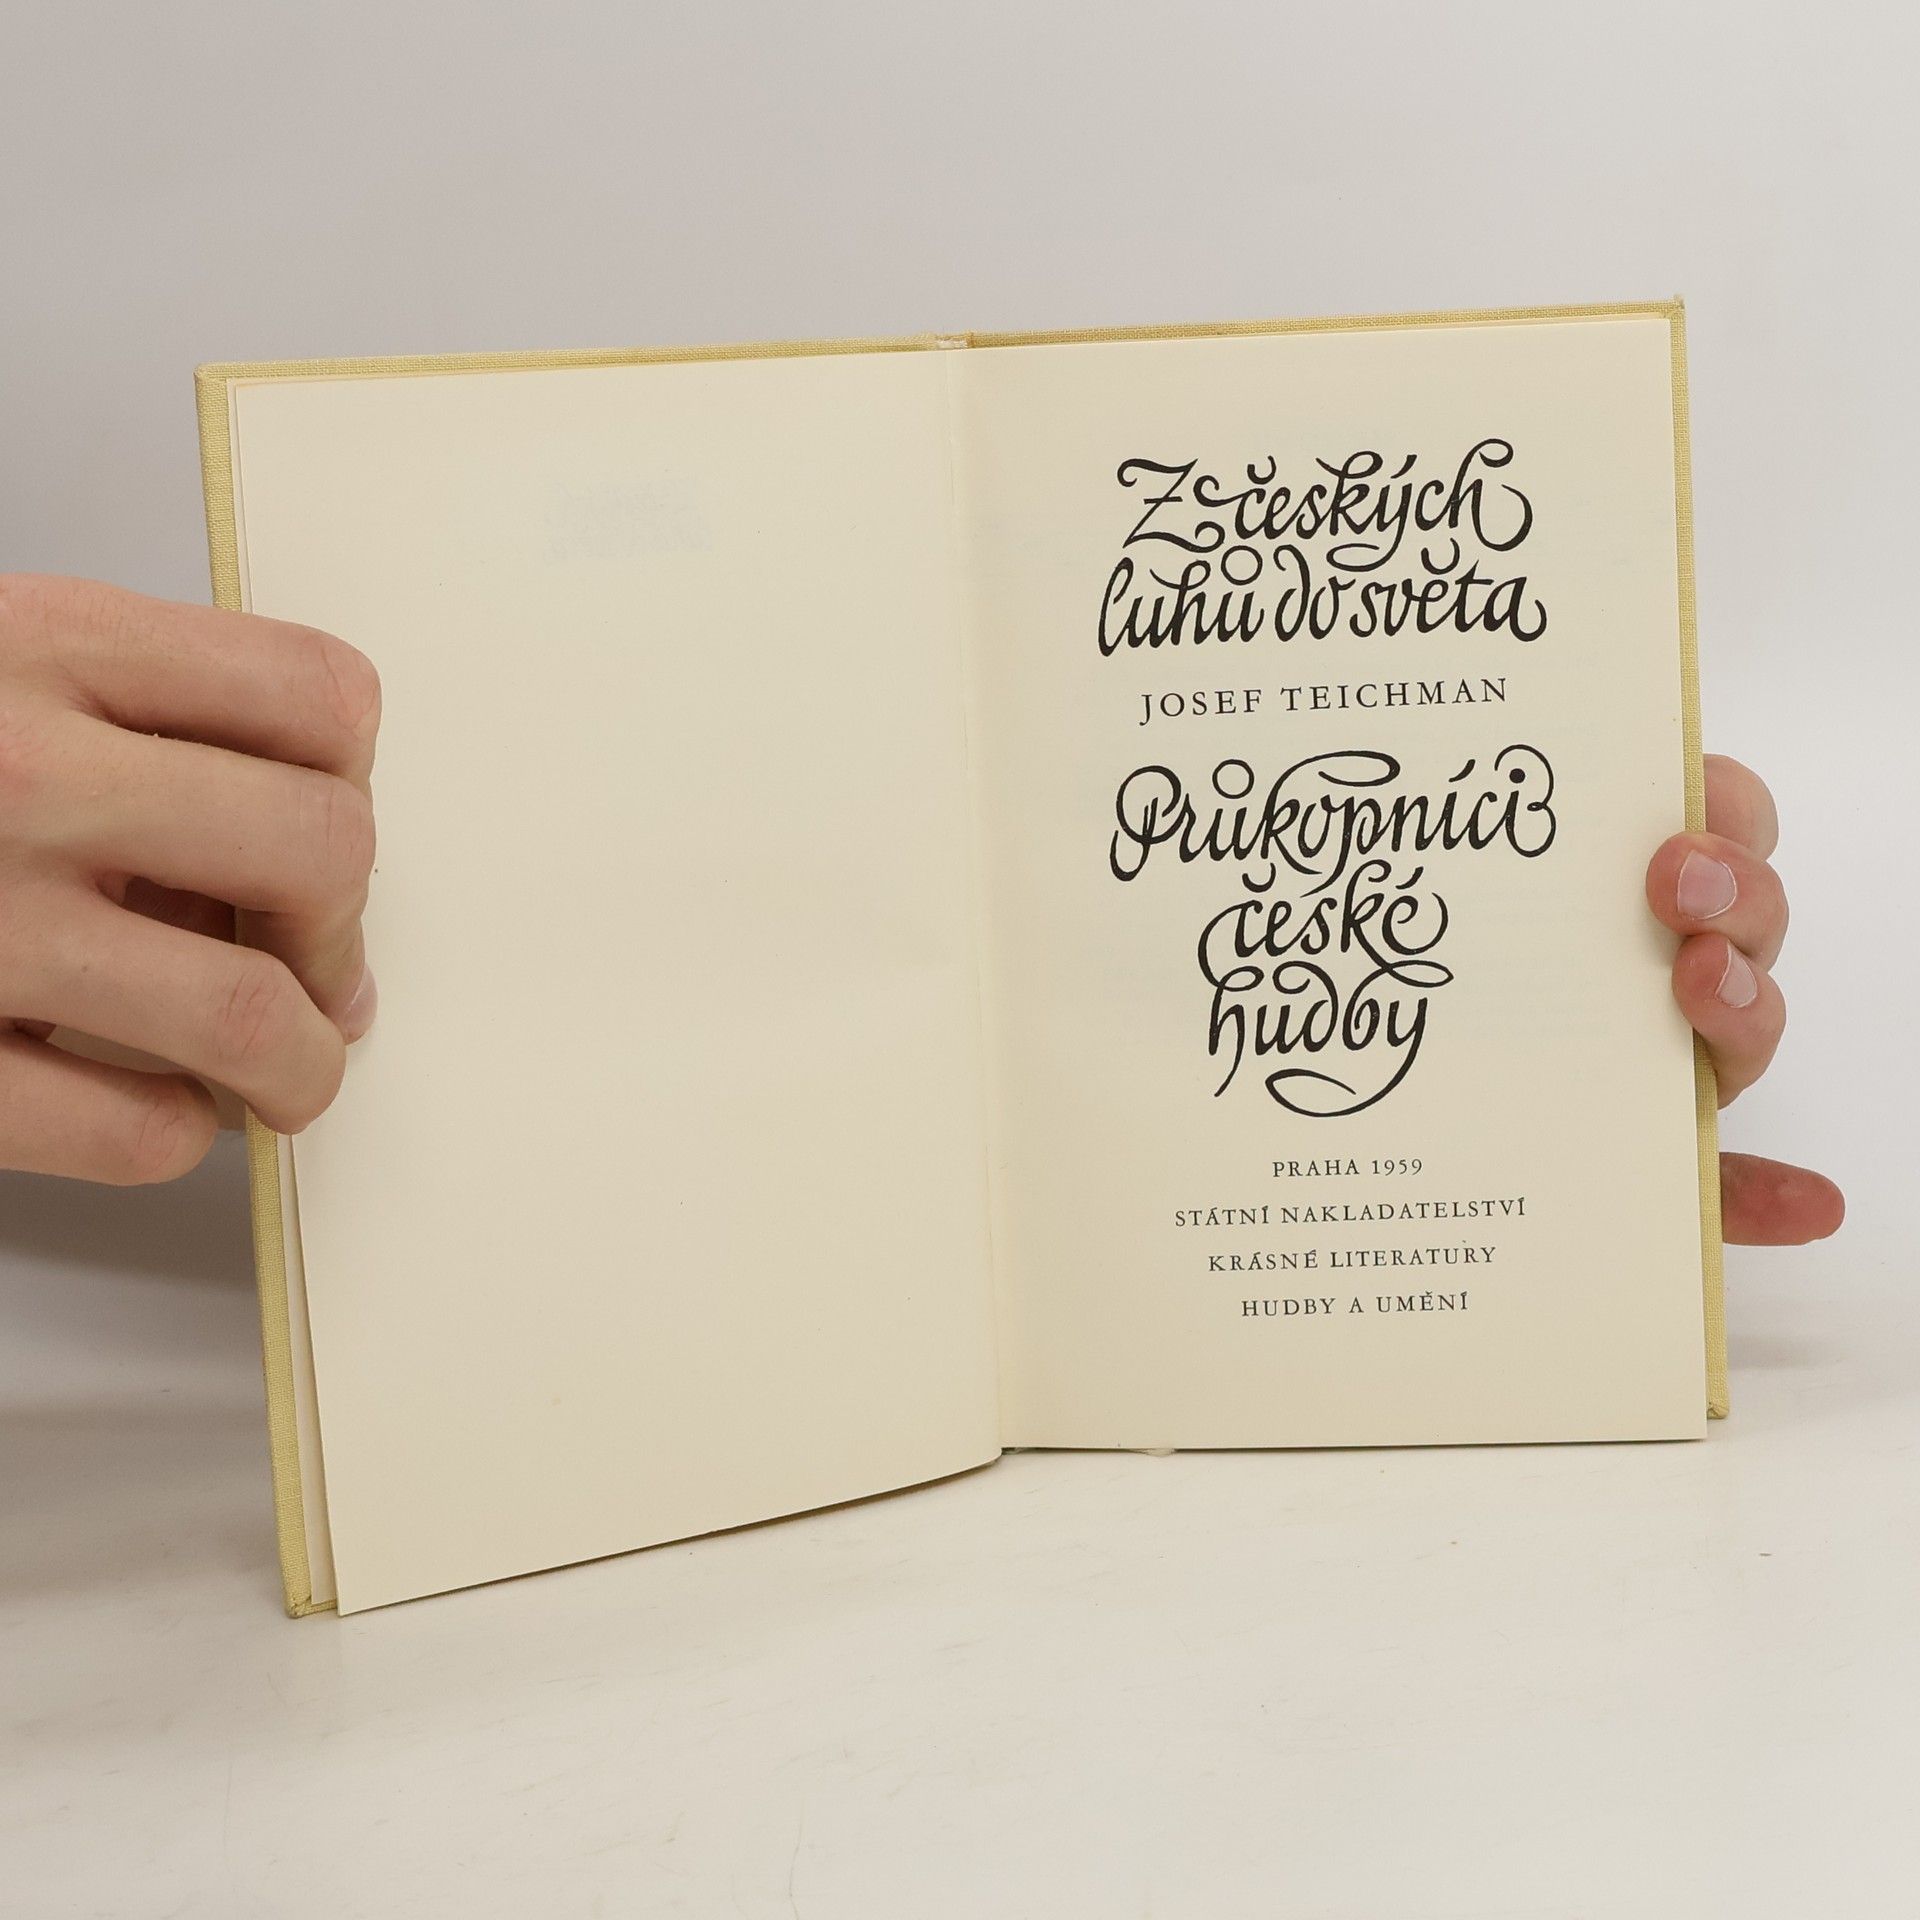 Z českých
luhů do světa
JOSEF TEICHMAN
Průkopníci
české
hudby
PRAHA 1959
STÁTNÍ NAKLADATELSTVÍ
KRÁSNÉ LITERATURY
HUDBY A UMĚNÍ